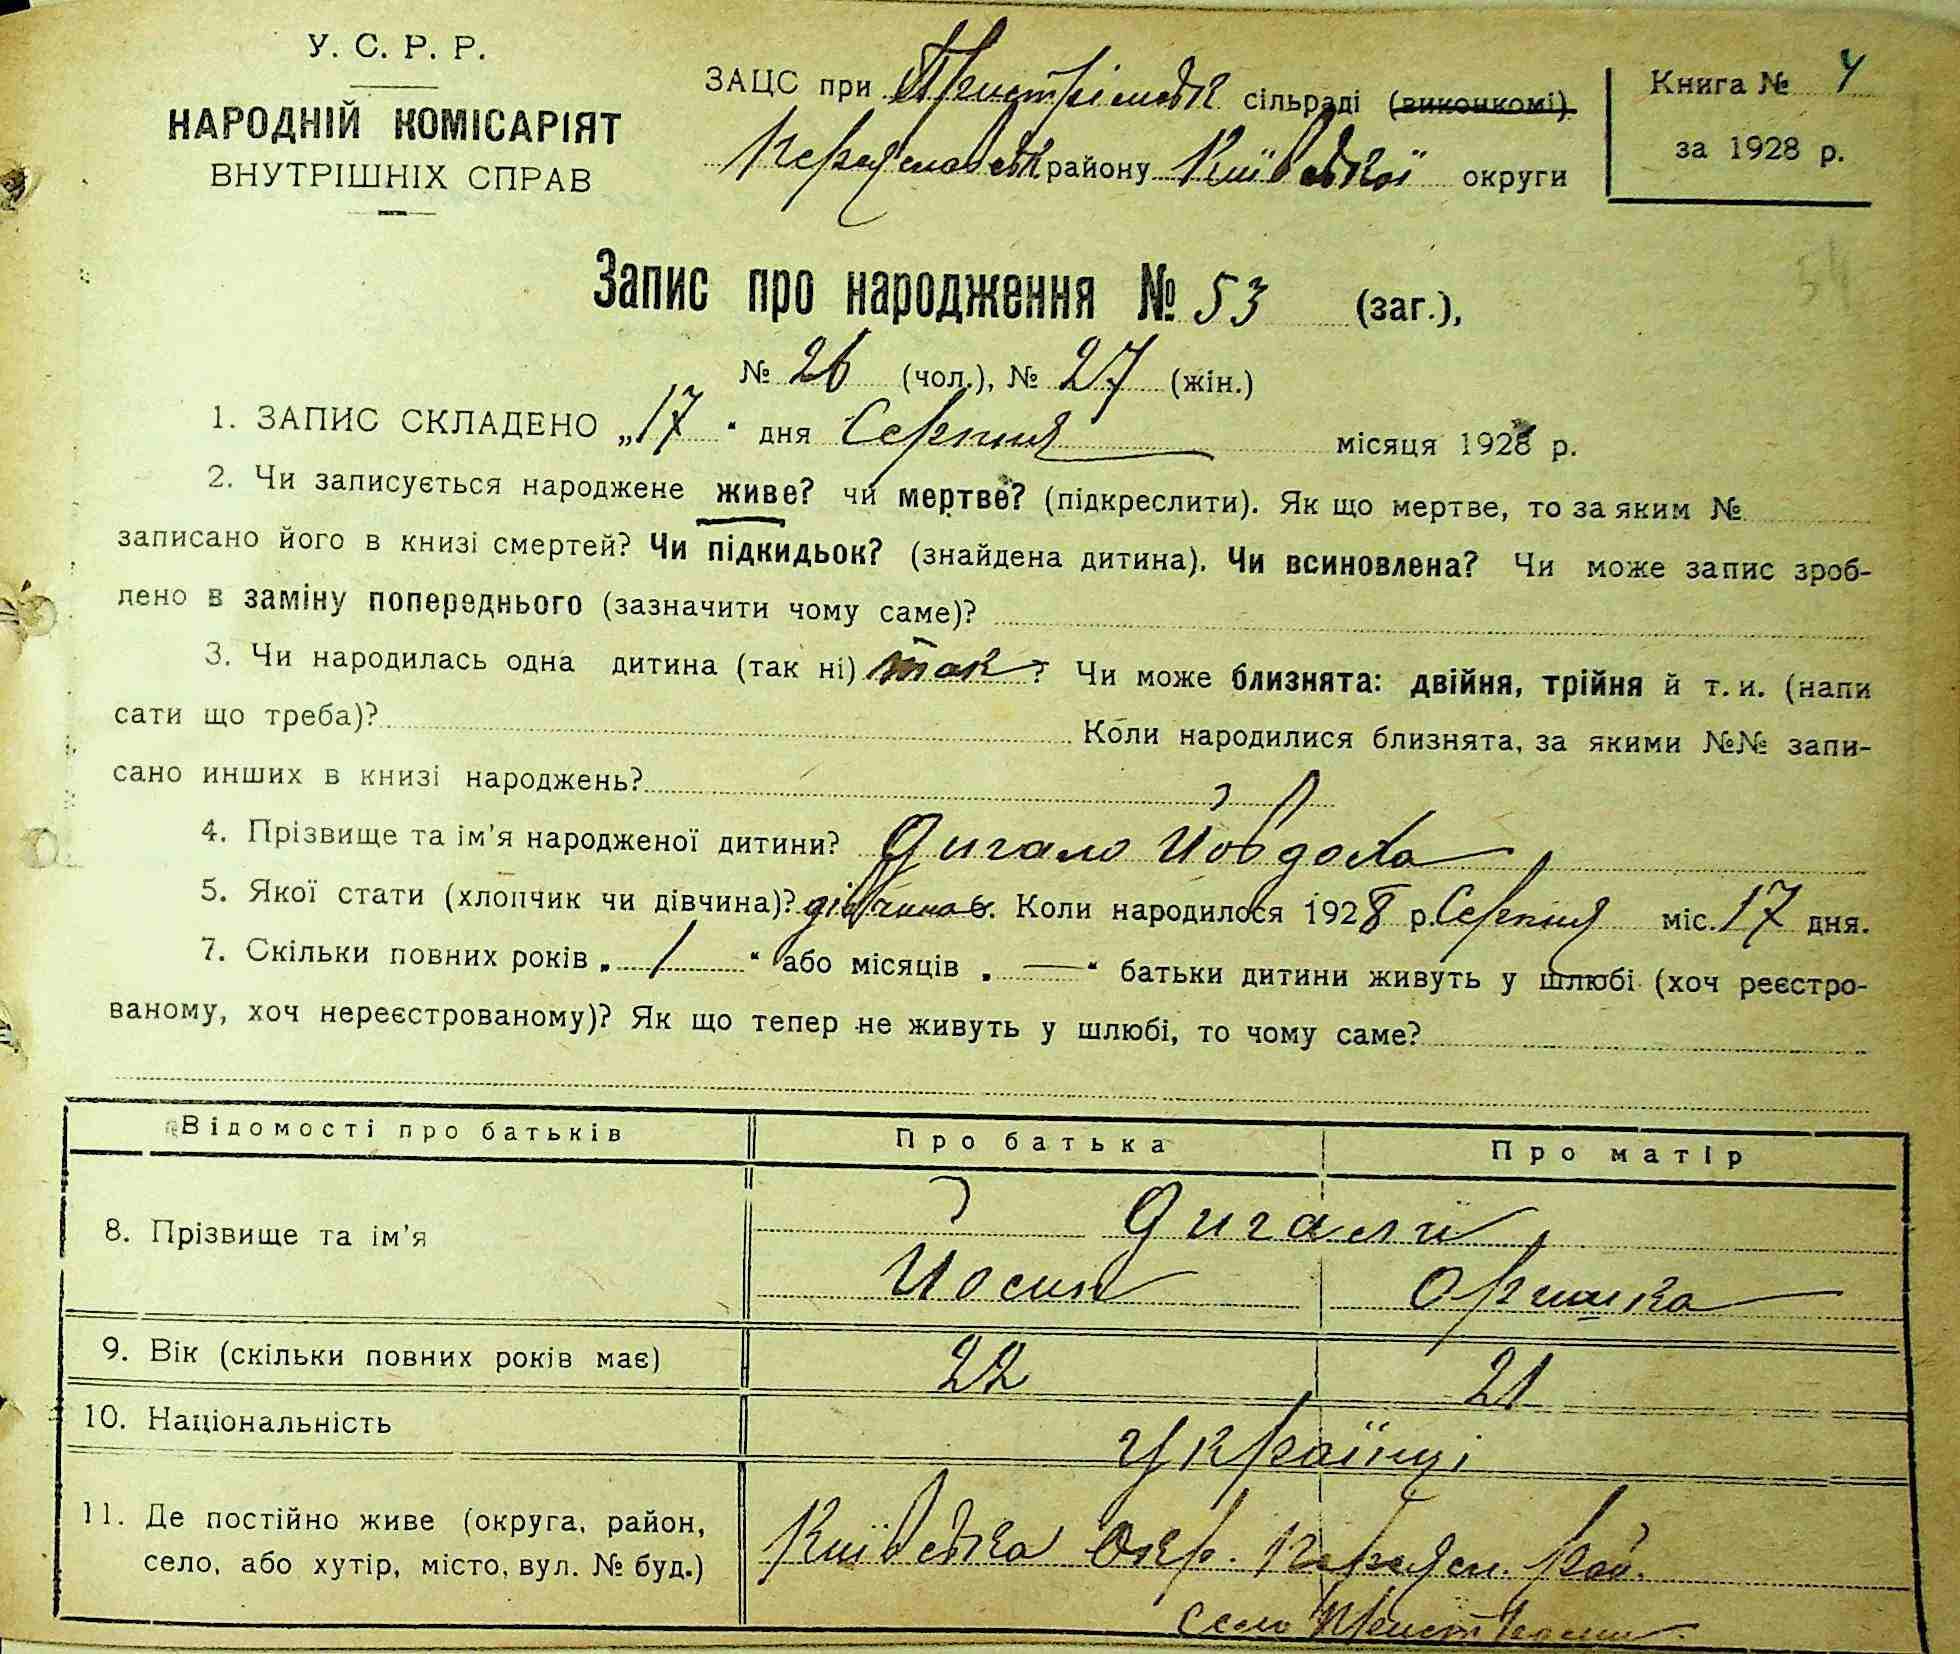 У. С. Р. Р.
НАРОДНІЙ КОМІСАРІЯТ
ВНУТРІШНІХ СПРАВ
ЗАЦС при Пристромськ сільраді (виконкомі)
Переяславськ району Київської округи
Книга № 4
за 1928 р.
54
Запис про народження № 53 (заг.),
№ 26 (чол.), № 27 (жін.)
1. ЗАПИС СКЛАДЕНО „17“ дня Серпня місяця 1928 р.
2. Чи записується народжене живе? чи мертве? (підкреслити). Як що мертве, то за яким №
записано його в книзі смертей? Чи підкидьок? (знайдена дитина). Чи всиновлена? Чи може запис зроб-
лено в заміну попереднього (зазначити чому саме)?
3. Чи народилась одна дитина (так ні) так? Чи може близнята: двійня, трійня й т. и. (напи
сати що треба)? Коли народилися близнята, за якими №№ запи-
сано инших в книзі народжень?
4. Прізвище та ім'я народженої дитини? Дигало Йовдоха
5. Якої стати (хлопчик чи дівчина)? дівчина. Коли народилося 1928 р. Серпня міс. 17 дня.
7. Скільки повних років „ 1 “ або місяців „ — “ батьки дитини живуть у шлюбі (хоч реєстро-
ваному, хоч нереєстрованому)? Як що тепер не живуть у шлюбі, то чому саме?
Відомості про батьків Про батька Про матір
8. Прізвище та ім'я Дигали
Йосип Оришка
9. Вік (скільки повних років має) 22 21
10. Національність Українці
11. Де постійно живе (округа, район,
село, або хутір, місто, вул. № буд.) Київська Окр. Переясл. рай.
село